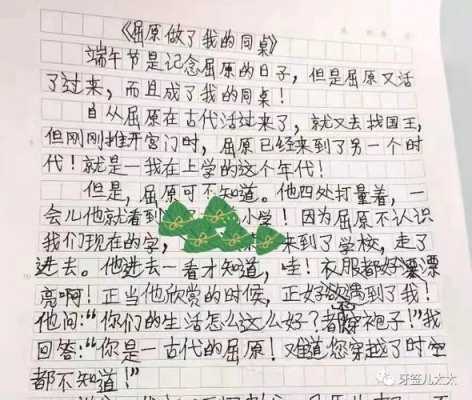 《屈原做了我的同桌》
端午节是记念屈原的日子，但是屈原又活
了过来，而且成了我的同桌！
自从屈原在古代活过来了，就又去找国王，
但刚刚推开宫门时，屈原已经来到了另一个时
代！就是一我在上学的这个年代！
但是，屈原可不知道。他四处打量着，一
会儿他就看到 小学！因为屈原不认识
我们现在的字， 来到了学校，走了
进去。他进去一看才知道，哇！衣服都好漂漂
亮啊！正当他欣赏的时候，正好遇到了我！
他问：“你们的生活怎么这么好？都穿袍子！”我
回答：“你是一古代的屈原！难道您穿越了时空
都不知道！”
牙签儿太太